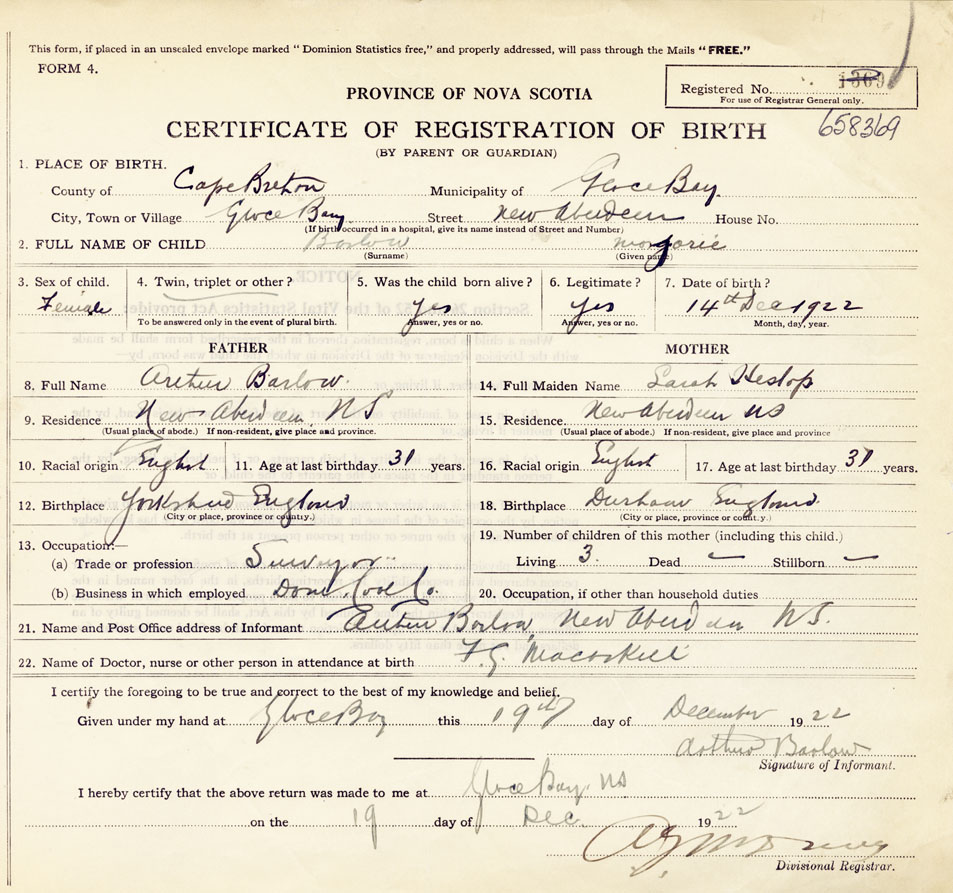 This form, if placed in an unsealed envelope marked "Dominion Statistics free," and properly addressed, will pass through the Mails "FREE."
FORM 4.
Registered No. 1369
For use of Registrar General only.
PROVINCE OF NOVA SCOTIA
658369
CERTIFICATE OF REGISTRATION OF BIRTH
(BY PARENT OR GUARDIAN)
1. PLACE OF BIRTH.
County of Cape Breton Municipality of Glace Bay
City, Town or Village Glace Bay Street New Aberdeen House No.
(If birth occurred in a hospital, give its name instead of Street and Number)
2. FULL NAME OF CHILD Barlow Marjorie
(Surname) (Given name)
3. Sex of child. 4. Twin, triplet or other? 5. Was the child born alive? 6. Legitimate? 7. Date of birth?
Female Yes Yes 14th Dec 1922
To be answered only in the event of plural birth. Answer, yes or no. Answer, yes or no. Month, day, year.
FATHER MOTHER
8. Full Name Arthur Barlow 14. Full Maiden Name Sarah Heslop
9. Residence New Aberdeen, NS 15. Residence New Aberdeen NS
(Usual place of abode.) If non-resident, give place and province. (Usual place of abode.) If non-resident, give place and province
10. Racial origin English 11. Age at last birthday 31 years. 16. Racial origin English 17. Age at last birthday 31 years.
12. Birthplace Yorkshire England 18. Birthplace Durham England
(City or place, province or country.) (City or place, province or country.)
13. Occupation:— 19. Number of children of this mother (including this child.)
(a) Trade or profession Surveyor Living 3 Dead — Stillborn —
(b) Business in which employed Dom. Coal Co. 20. Occupation, if other than household duties
21. Name and Post Office address of Informant Arthur Barlow, New Aberdeen N.S.
22. Name of Doctor, nurse or other person in attendance at birth F.G. Macaskill
I certify the foregoing to be true and correct to the best of my knowledge and belief.
Given under my hand at Glace Bay this 19th day of December 1922
Arthur Barlow
Signature of Informant.
I hereby certify that the above return was made to me at Glace Bay, NS
on the 19 day of Dec. 1922
Divisional Registrar.